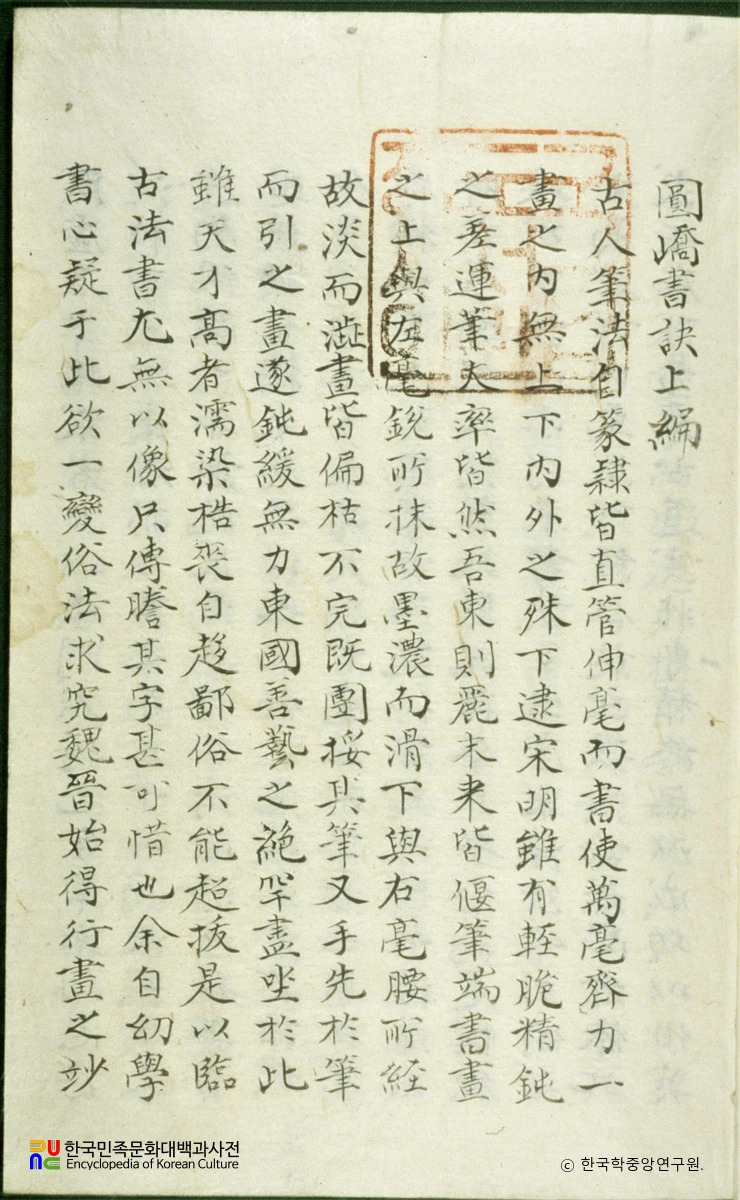 圓嶠書訣上編
古人筆法自篆隷皆直管伸毫而書使萬毫齊力一
畫之內無上下內外之殊下逮宋明雖有輕脆精鈍
之差運筆大率皆然吾東則麗末来皆偃筆端書畫
之上與左毫銳所抹故墨濃而滑下與右毫腰所經
故淡而澁畫皆偏枯不完旣團捼其筆又手先於筆
而引之畫遂鈍緩無力東國善藝之絶罕盡坐於此
雖天才高者濡染梏喪自趍鄙俗不能超拔是以臨
古法書尤無以像只傳謄其字甚可惜也余自幼學
書心疑于此欲一變俗法求究魏晉始得行畫之妙
한국민족문화대백과사전
Encyclopedia of Korean Culture
© 한국학중앙연구원.